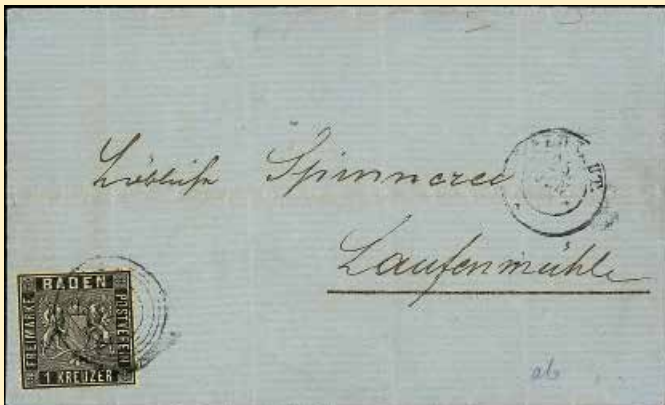 Löbliche Spinnerei
Laufenmühle
BADEN
FREIMARKE
POSTVEREIN
1 KREUZER
ab